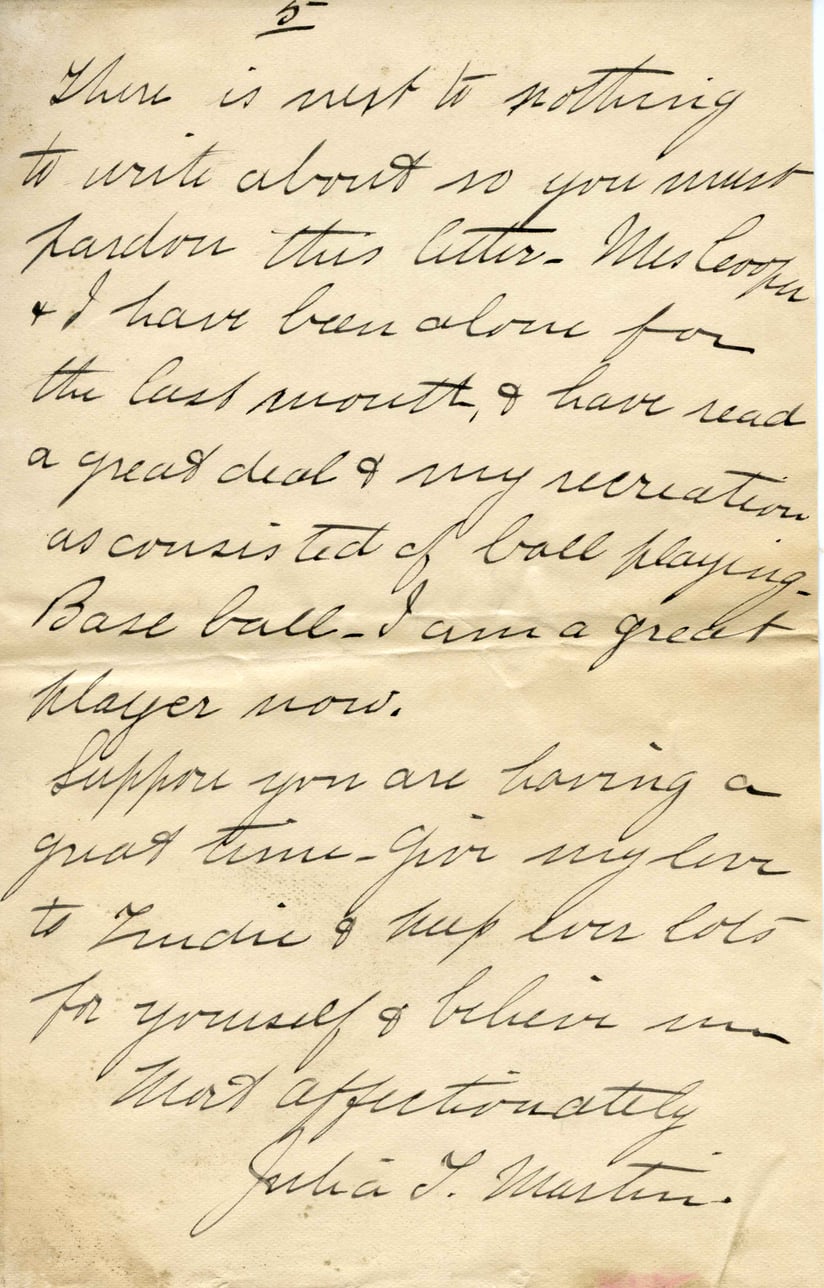 5
There is next to nothing
to write about so you must
pardon this letter - Mrs Cooper
& I have been alone for
the last month, & have read
a great deal & my recreation
as consisted of ball playing -
Base ball - I am a great
player now.
Suppose you are having a
great time - Give my love
to & keep ever lots
for yourself & believe me
Most affectionately
Julia T. Martin.